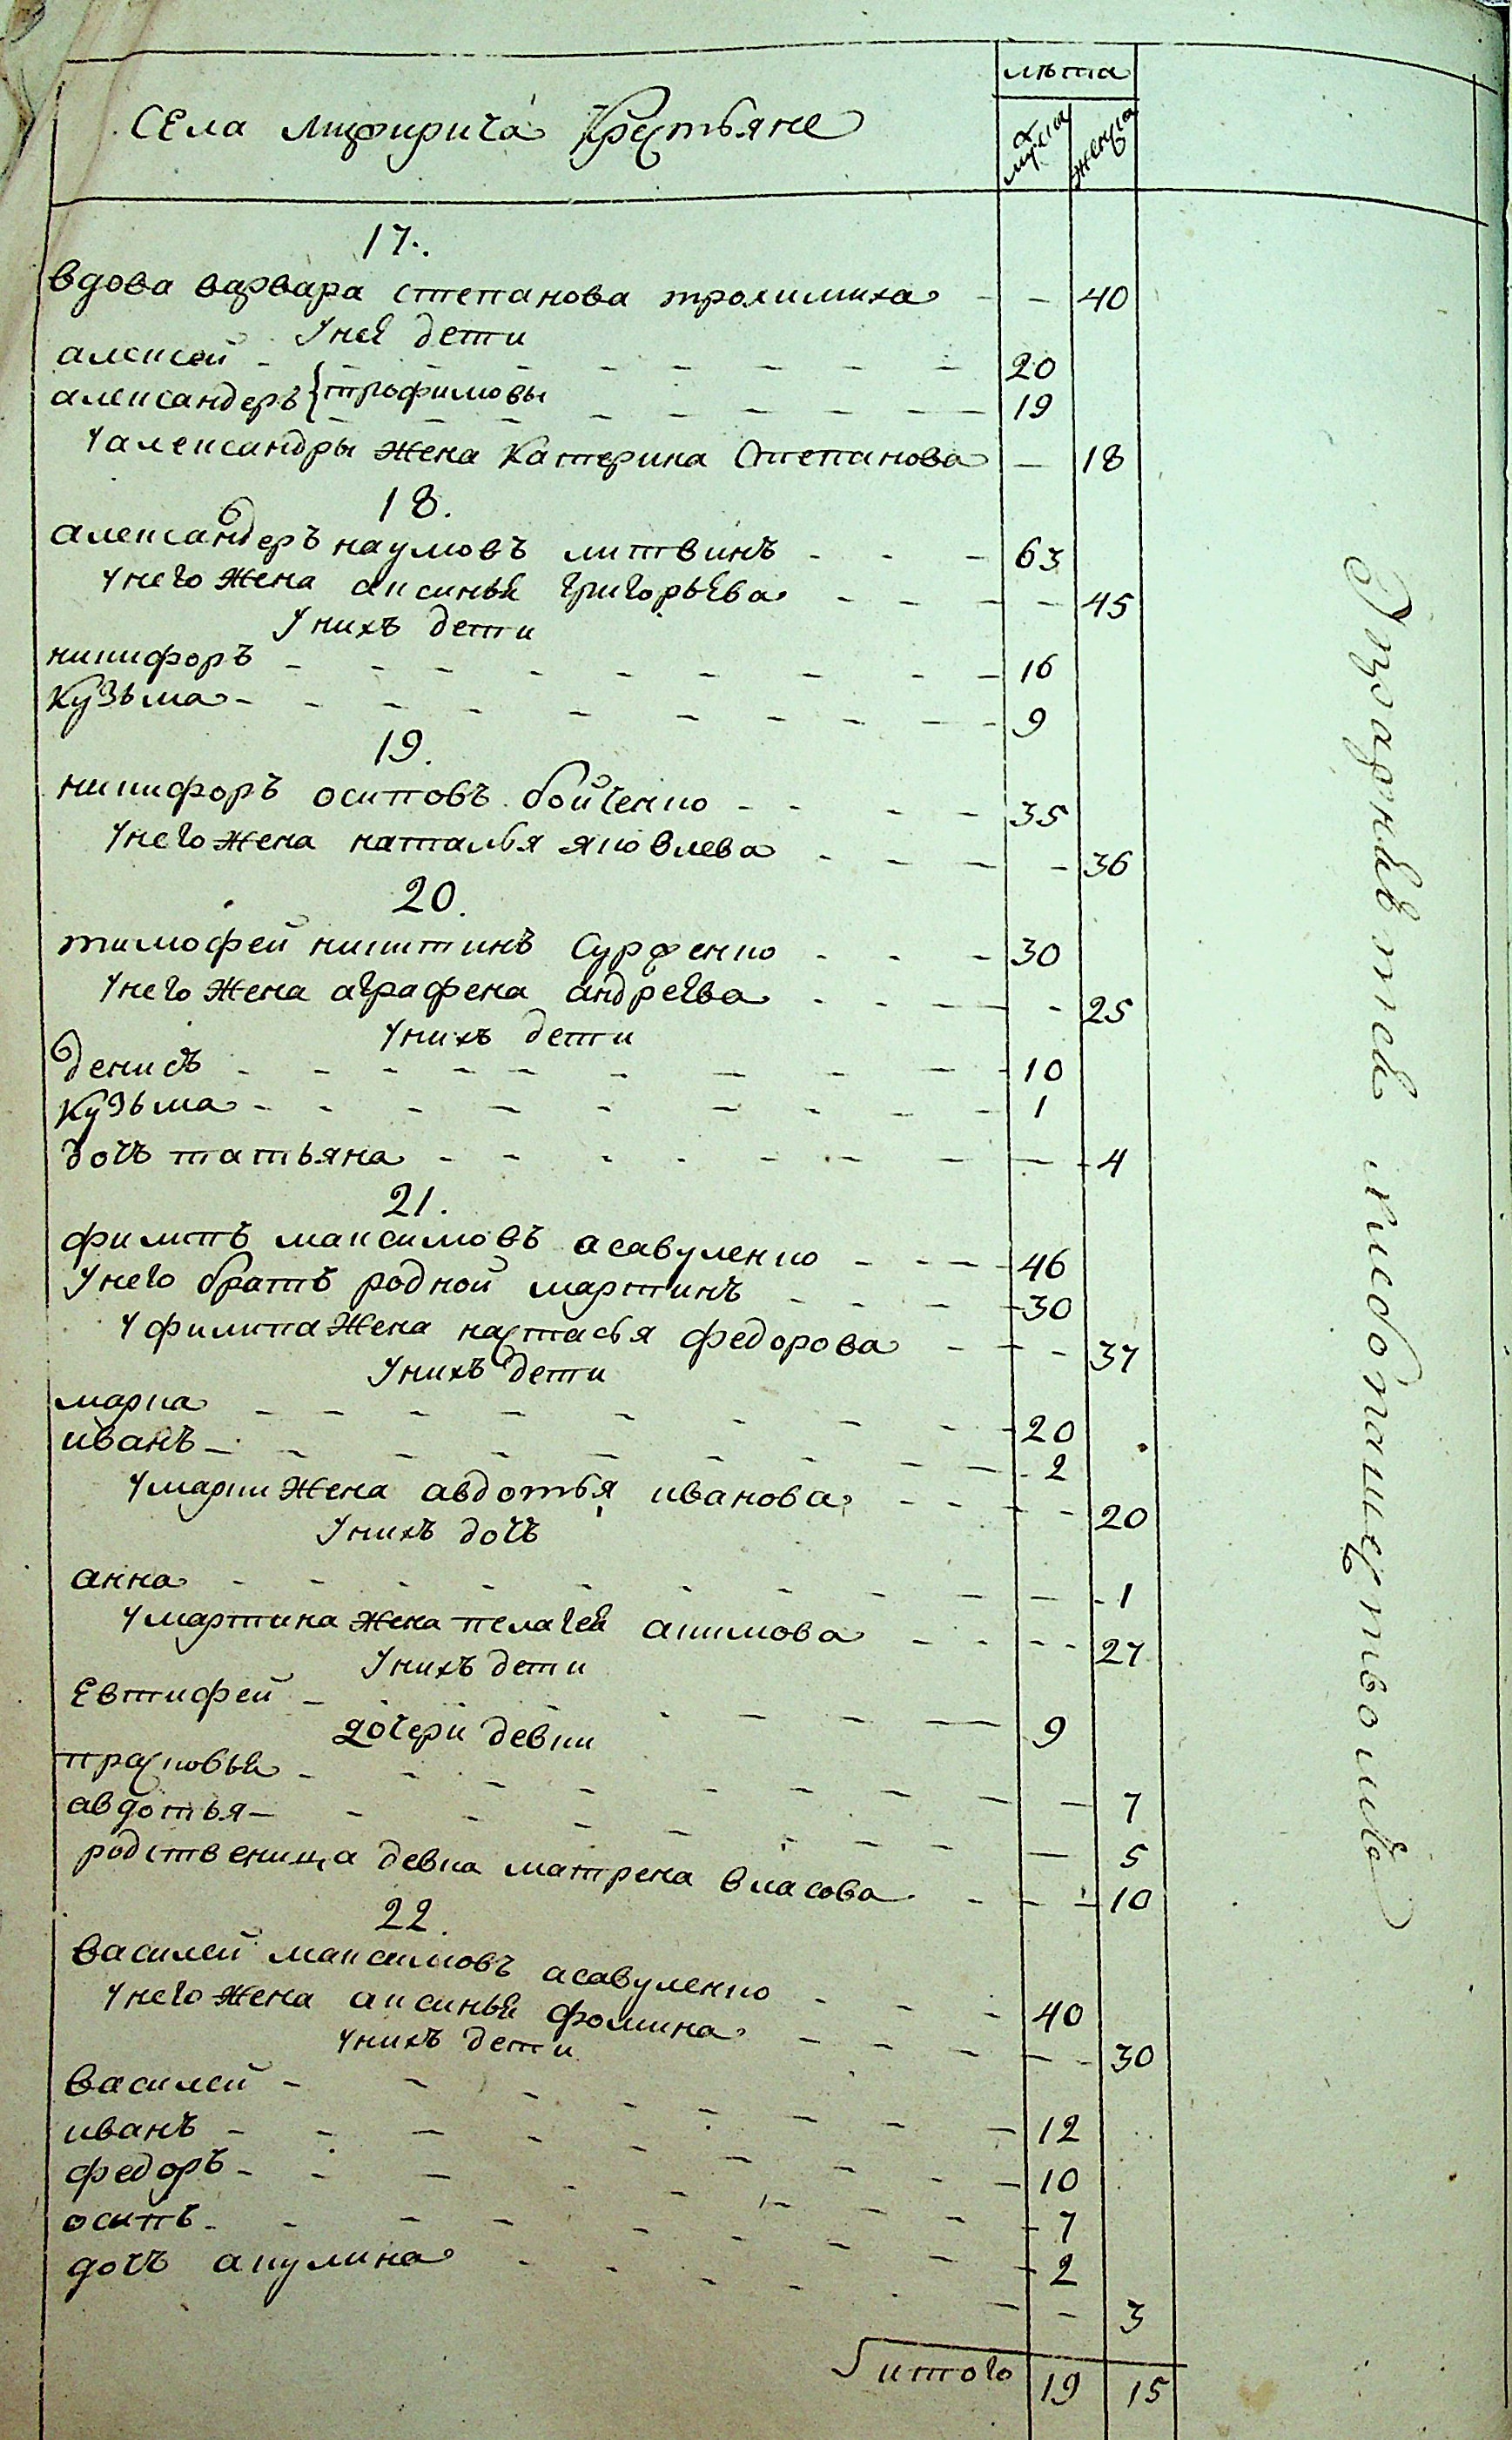 лѣта
Села Крестьяне
мужеска женска
17.
вдова варвара степанова трохимиха - - 40
У неё дети
алексей - - - 20
александеръ { трофимовы - - - 19
у александры жена катерина степанова - 18
18.
александеръ наумовъ литвинъ - - - 63
у него жена аксинья григорьева - - - - 45
У нихъ дети
никифоръ - - - 16
кузьма - - - 9
19.
никифоръ осиповъ бойченко - - - 35
у него жена наталья яковлева - - - - 36
20.
тимофей никитинъ - - - 30
у него жена аграфена андреева - - - - 25
у нихъ дети
денисъ - - - 10
кузьма - - - 1
дочь татьяна - - - 4
21.
филипъ максимовъ асавуленко - - - 46
У него братъ родной мартинъ - - - 30
у филипа жена настасья федорова - - - 37
У нихъ дети
марка - - - 20
иванъ - - - 2
у марки жена авдотья иванова - - - - 20
У нихъ дочь
анна - - - 1
у мартина жена пелагея акимова - - - - 27
У нихъ дети
Евтифей - - - 9
дочери девки
прасковья - - - 7
авдотья - - - 5
родственица девка матрена власова - - - 10
22.
василей максимовъ асавуленко - - - 40
у него жена аксинья фомина - - - - 30
у нихъ дети
василей - - - 12
иванъ - - - 10
федоръ - - - 7
осипъ - - - 2
дочь акулина - - - 3
итого 19 15